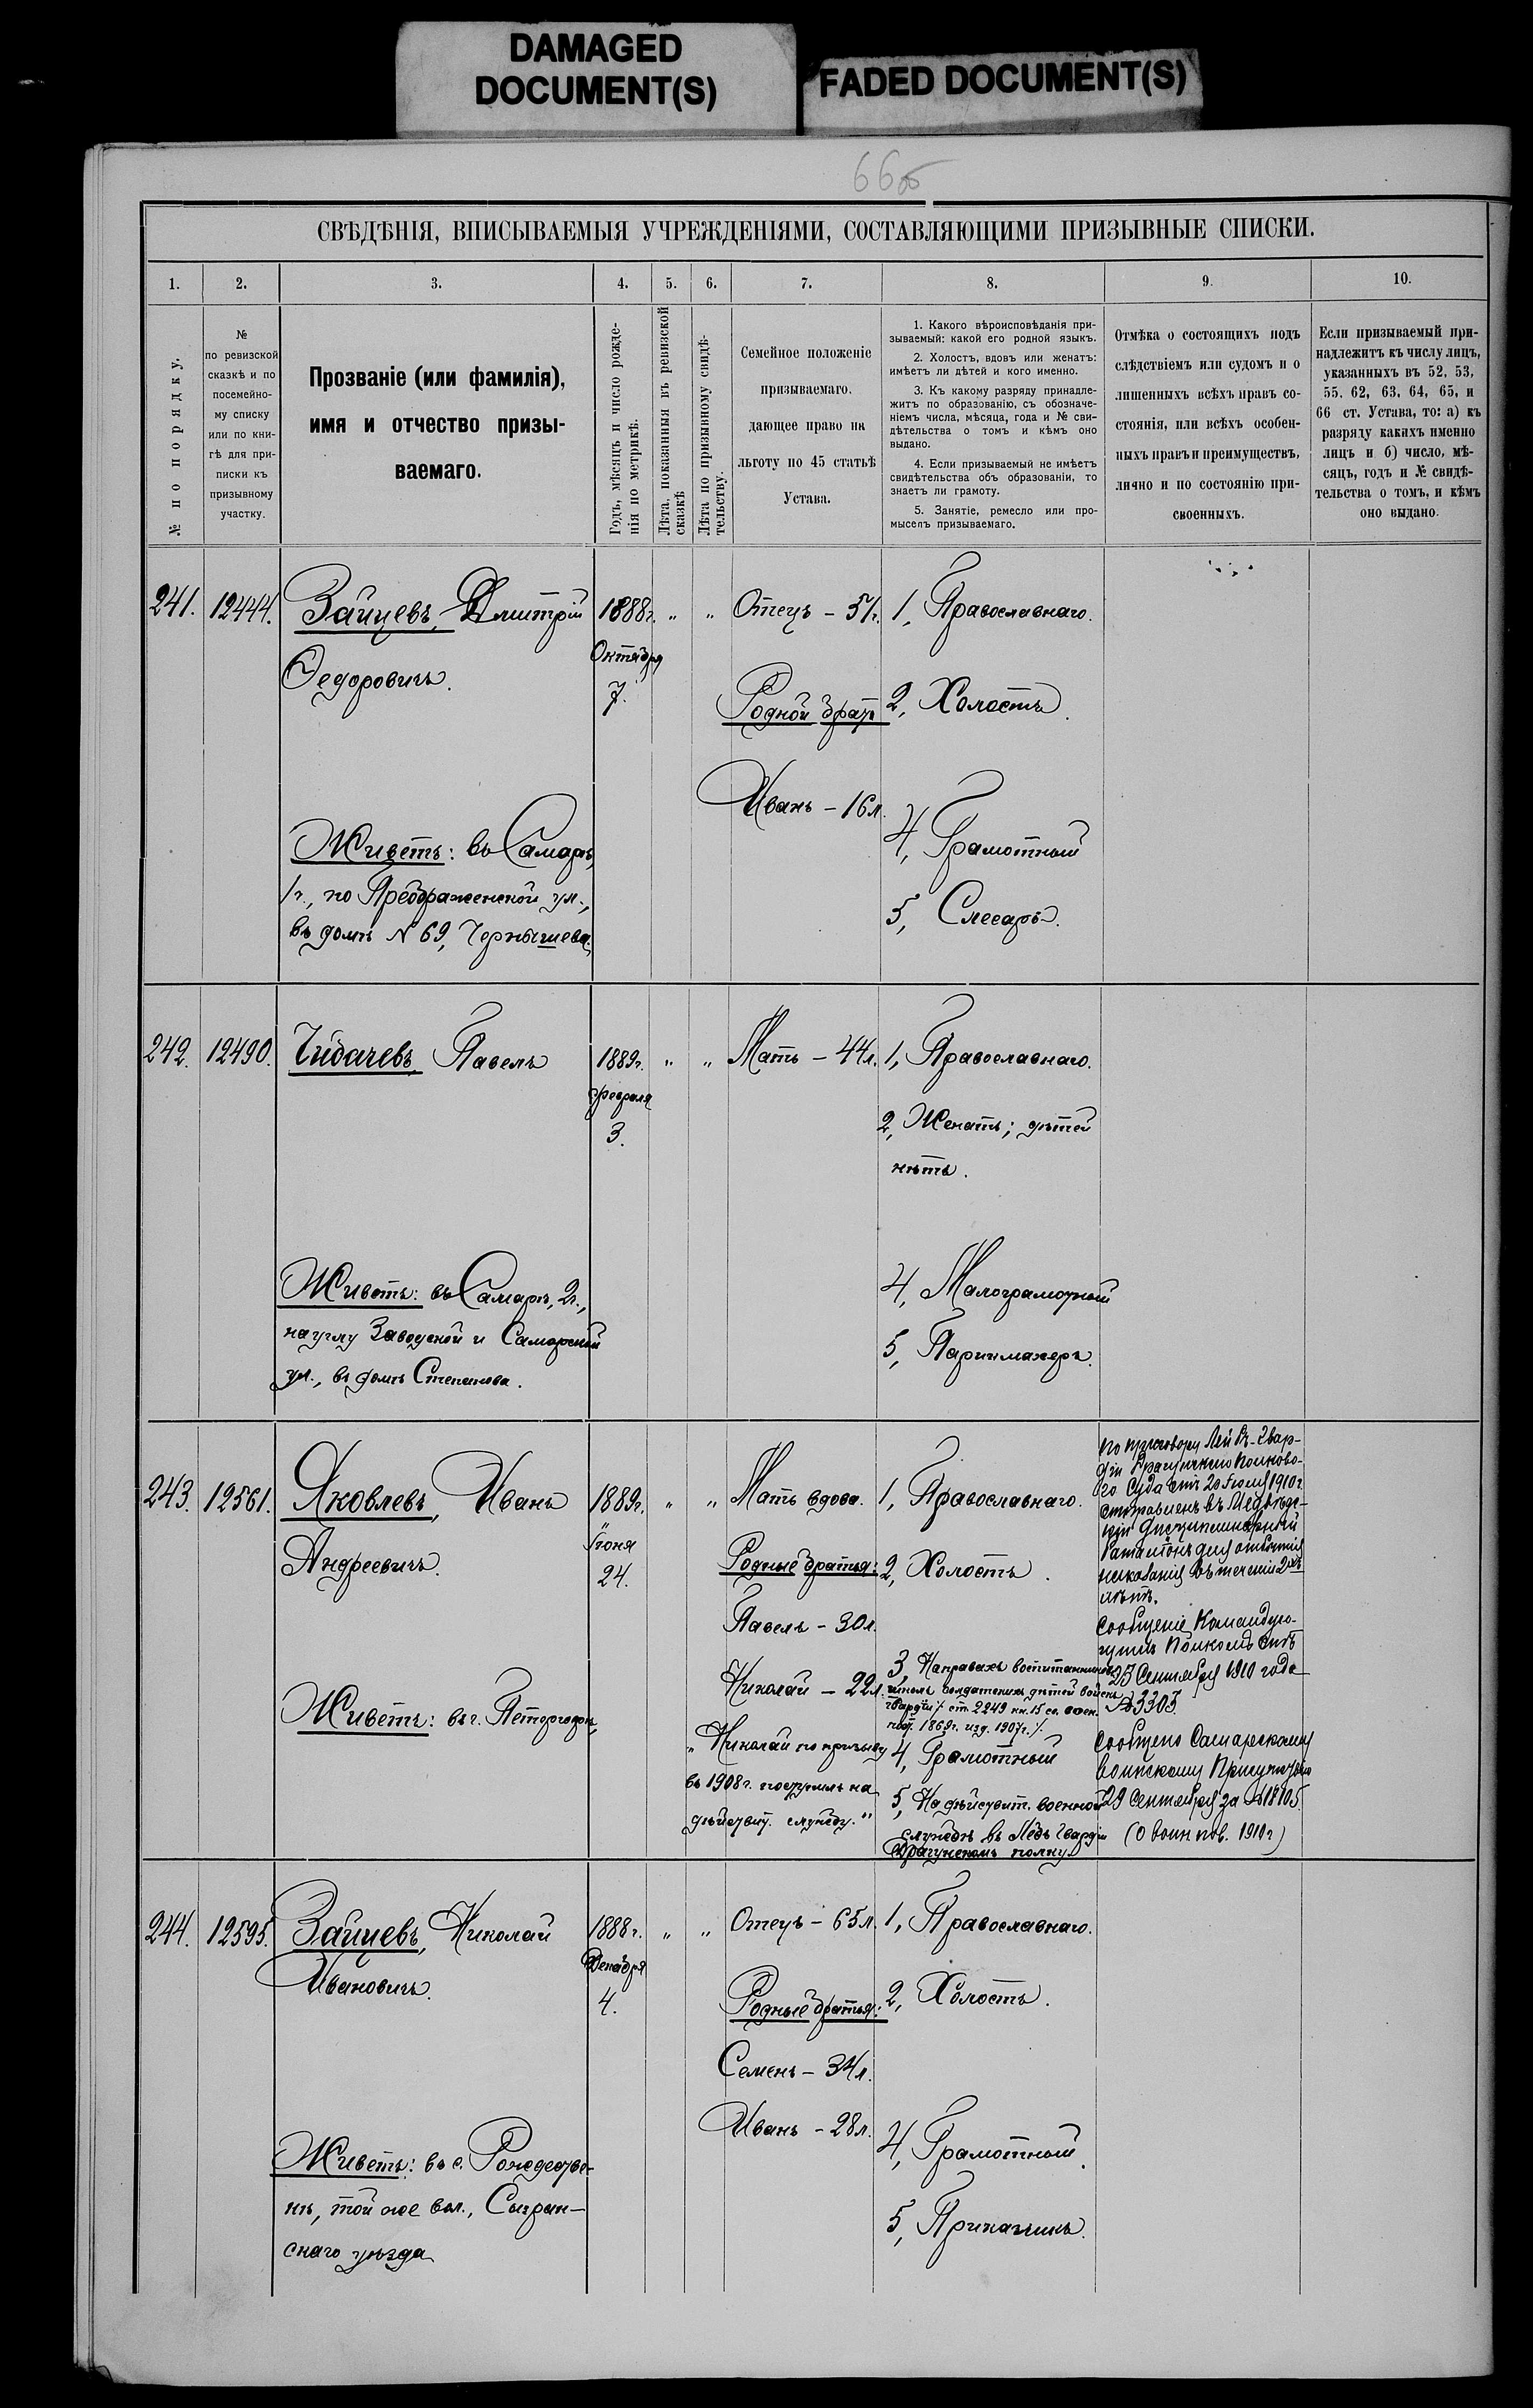 DAMAGED
DOCUMENT(S)
FADED DOCUMENT(S)
66об
СВѢДѢНІЯ, ВПИСЫВАЕМЫЯ УЧРЕЖДЕНІЯМИ, СОСТАВЛЯЮЩИМИ ПРИЗЫВНЫЕ СПИСКИ.
1.
2.
3.
4.
5.
6.
7.
8.
9.
10.
№ по порядку.
№
по ревизской
сказкѣ и по
посемейно-
му списку
или по кни-
гѣ для при-
писки къ
призывному
участку.
Прозваніе (или фамилія),
имя и отчество призы-
ваемаго.
Годъ, мѣсяцъ и число рожде-
нія по метрикѣ.
Лѣта, показанныя въ ревизской
сказкѣ
Лѣта по призывному свидѣ-
тельству.
Семейное положеніе
призываемаго.
дающее право на
льготу по 45 статьѣ
Устава.
1. Какого вѣроисповѣданія при-
зываемый: какой его родной языкъ.
2. Холостъ, вдовъ или женатъ:
имѣетъ ли дѣтей и кого именно.
3. Къ какому разряду принадле-
житъ по образованію, съ обозначе-
ніемъ числа, мѣсяца, года и № сви-
дѣтельства о томъ и кѣмъ оно
выдано.
4. Если призываемый не имѣетъ
свидѣтельства объ образованіи, то
знаетъ ли грамоту.
5. Занятіе, ремесло или про-
мыселъ призываемаго.
Отмѣка о состоящихъ подъ
слѣдствіемъ или судомъ и о
лишенныхъ всѣхъ правъ со-
стоянія, или всѣхъ особен-
ныхъ правъ и преимуществъ,
лично и по состоянію при-
своенныхъ.
Если призываемый при-
надлежитъ къ числу лицъ,
указанныхъ въ 52, 53,
55. 62, 63, 64, 65, и
66 ст. Устава, то: а) къ
разряду какихъ именно
лицъ и б) число, мѣ-
сяцъ, годъ и № свидѣ-
тельства о томъ, и кѣмъ
оно выдано.
241.
12444.
Зайцевъ, Дмитрій
Федоровичъ.
Живетъ: въ Самарѣ,
1 ч., по Преображенской ул.,
въ домѣ № 69, Чернышева.
1888г.
Октября
7.
" "
Отецъ - 51г.
Родной братъ
Иванъ - 16л.
1, Православнаго.
2, Холостъ.
4, Грамотный
5, Слесарь.
242.
12490.
Чибачевъ Павелъ
Живетъ: въ Самарѣ, 2ч.,
на углу Заводской и Самарской
ул., въ домѣ Степанова.
1889г.
Февраля
3.
" "
Мать - 44л.
1, Православнаго.
2, Женатъ; дѣтей
нѣтъ.
4, Малограмотный
5, Парикмахеръ.
243.
12561.
Яковлевъ, Иванъ
Андреевичъ.
Живетъ: въ г. Петергофѣ,
1889г.
Іюня
24.
" "
Мать вдова.
Родные братья:
Павелъ - 30л.
Николай - 22л.
"Николай по призыву
въ 1908г. поступилъ на
дѣйствит. службу."
1, Православнаго.
2, Холостъ.
3, На правахъ воспитанниковъ
школъ солдатскихъ дѣтей войскъ
гвардіи /. ст. 2249 кн. 15 св. воен.
пост. 1869г. изд. 1907г. /.
4, Грамотный
5, На дѣйствит. военной
службѣ въ Лейбъ Гвардіи
Драгунскомъ полку.
По приговору Лейбъ-Гвар-
діи Драгунскаго Полково-
го Суда отъ 20 Іюля 1910г.
отправленъ въ Медвѣдс-
кій дисциплинарный
баталіонъ для отбытія
наказанія въ теченіи 2хъ
лѣтъ.
Сообщеніе Командую-
щаго Полкомъ отъ
25 Сентября 1910 года
№ 3303.
Сообщено Самарскому
Воинскому Присутствію
29 Сентября за № 18105
(О воин. пов. 1910г)
244.
12595.
Зайцевъ, Николай
Ивановичъ.
Живетъ: въ с. Рождестве-
нѣ, той же вол., Сызран-
скаго уѣзда
1888г.
Декабря
4.
" "
Отецъ - 65л.
Родные братья:
Семенъ - 34л.
Иванъ - 28л.
1, Православнаго.
2, Холостъ.
4, Грамотный.
5, Приказчикъ.